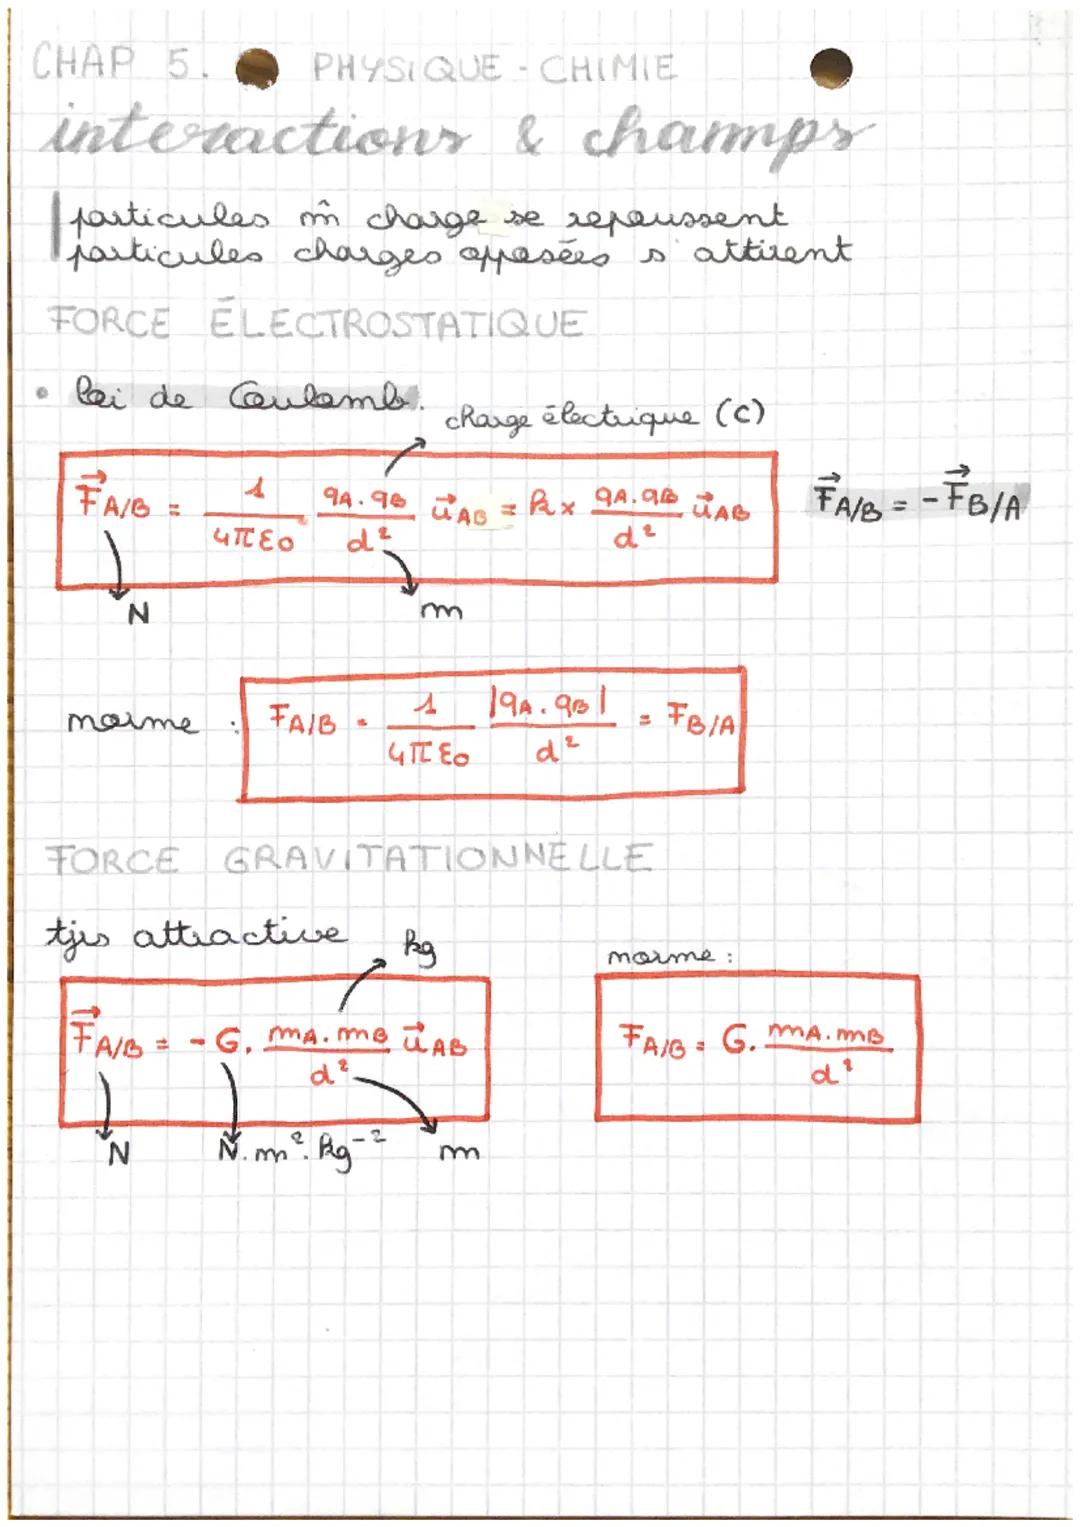 CHAP 5. PHYSIQUE - CHIMIE
interactions & champs
particules m̂ charge se repoussent
particules charges opposées s'attirent
FORCE ÉLECTROSTATIQUE
• loi de Coulomb.
charge électrique (C)
F⃗A/B = 1/4πε₀ qA.qB/d² u⃗AB = k × qA.qB/d² u⃗AB
F⃗A/B = -F⃗B/A
N m
norme : FA/B = 1/4πε₀ |qA.qB|/d² = FB/A
FORCE GRAVITATIONNELLE
tjrs attractive kg
norme :
F⃗A/B = -G. mA.mB/d² u⃗AB
FA/B = G. mA.mB/d²
N N.m².kg⁻² m